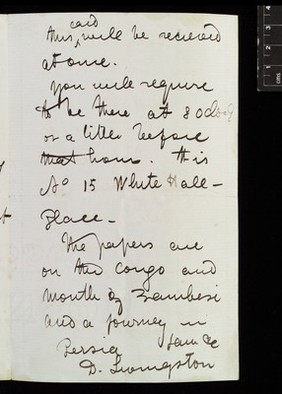 card
this ‸ will be recieved
at once.
You will require
to be there at 8 oclock
or a little before
that hour. It is
No 15 White Hall -
Place -
The papers are
on the Congo and
mouth of Zambesi
and a journey in
Persia
D. Livingston